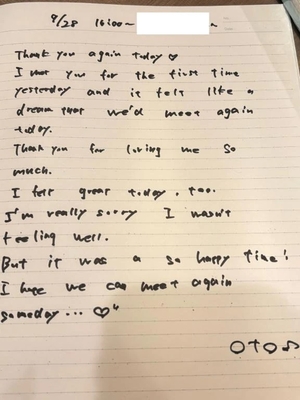 9/28 16:00~
Thank you again today ♡
I met you for the first time
yesterday and it felt like a
dream that we'd meet again
today.
Thank you for loving me so
much.
I felt great today, too.
I'm really sorry I wasn't
feeling well.
But it was a so happy time!
I hope we can meet again
someday... ♡"